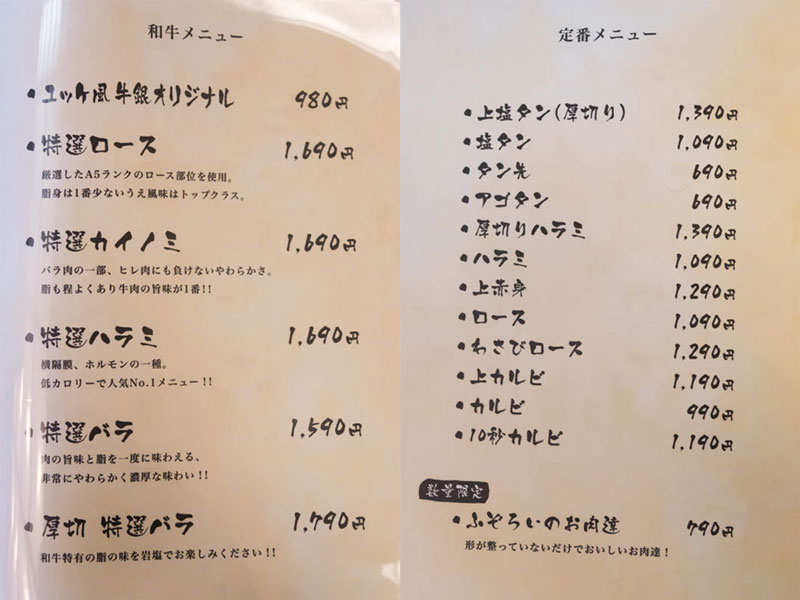 和牛メニュー
・ユッケ風牛銀オリジナル 980円
・特選ロース 1,690円
厳選したA5ランクのロース部位を使用。
脂身は1番少ないうえ風味はトップクラス。
・特選カイノミ 1,690円
バラ肉の一部、ヒレ肉にも負けないやわらかさ。
脂も程よくあり牛肉の旨味が1番!!
・特選ハラミ 1,690円
横隔膜、ホルモンの一種。
低カロリーで人気No.1メニュー!!
・特選バラ 1,590円
肉の旨味と脂を一度に味わえる、
非常にやわらかく濃厚な味わい!!
・厚切 特選バラ 1,790円
和牛特有の脂の味を岩塩でお楽しみください!!
定番メニュー
・上塩タン(厚切り) 1,390円
・塩タン 1,090円
・タン先 690円
・アゴタン 690円
・厚切りハラミ 1,390円
・ハラミ 1,090円
・上赤身 1,290円
・ロース 1,090円
・わさびロース 1,290円
・上カルビ 1,190円
・カルビ 990円
・10秒カルビ 1,190円
数量限定
・ふぞろいのお肉達 790円
形が整っていないだけでおいしいお肉達!